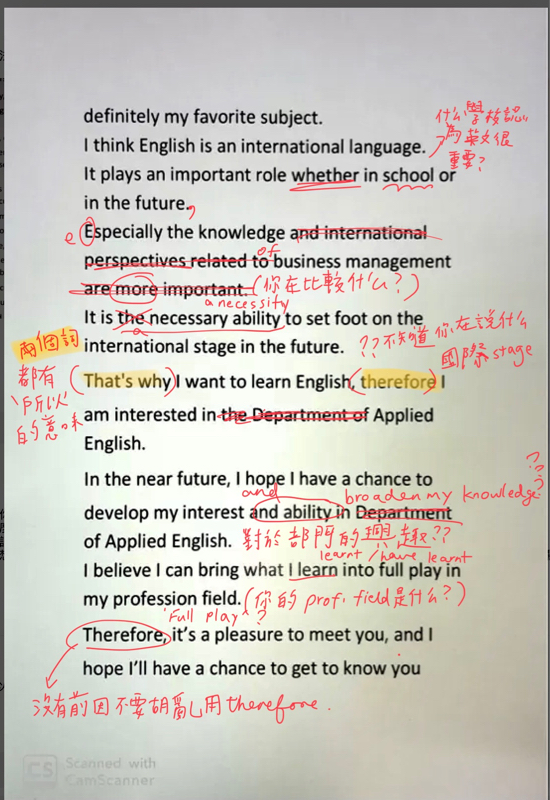 definitely my favorite subject.
什么學校認
為英文很
重要?
I think English is an international language.
It plays an important role whether in school or
in the future.,
e
Especially the knowledge and international
of
perspectives related to business management
are more important. (你在比較什么?)
a necessity
It is the necessary ability to set foot on the
a
international stage in the future.
??不知道你在說什么
國際stage
兩個詞
都有
"所以"
的意味
(That's why) I want to learn English, (therefore) I
am interested in the Department of Applied
English.
In the near future, I hope I have a chance to
and
broaden my knowledge
???
develop my interest and ability in Department
of Applied English.
對於部門的興趣??
learnt / have learnt
I believe I can bring what I learn into full play in
my profession field. (你的 prof. field是什么?)
"Full play"?
Therefore, it's a pleasure to meet you, and I
hope I'll have a chance to get to know you
沒有前因不要胡亂用therefore.
CS
Scanned with
CamScanner